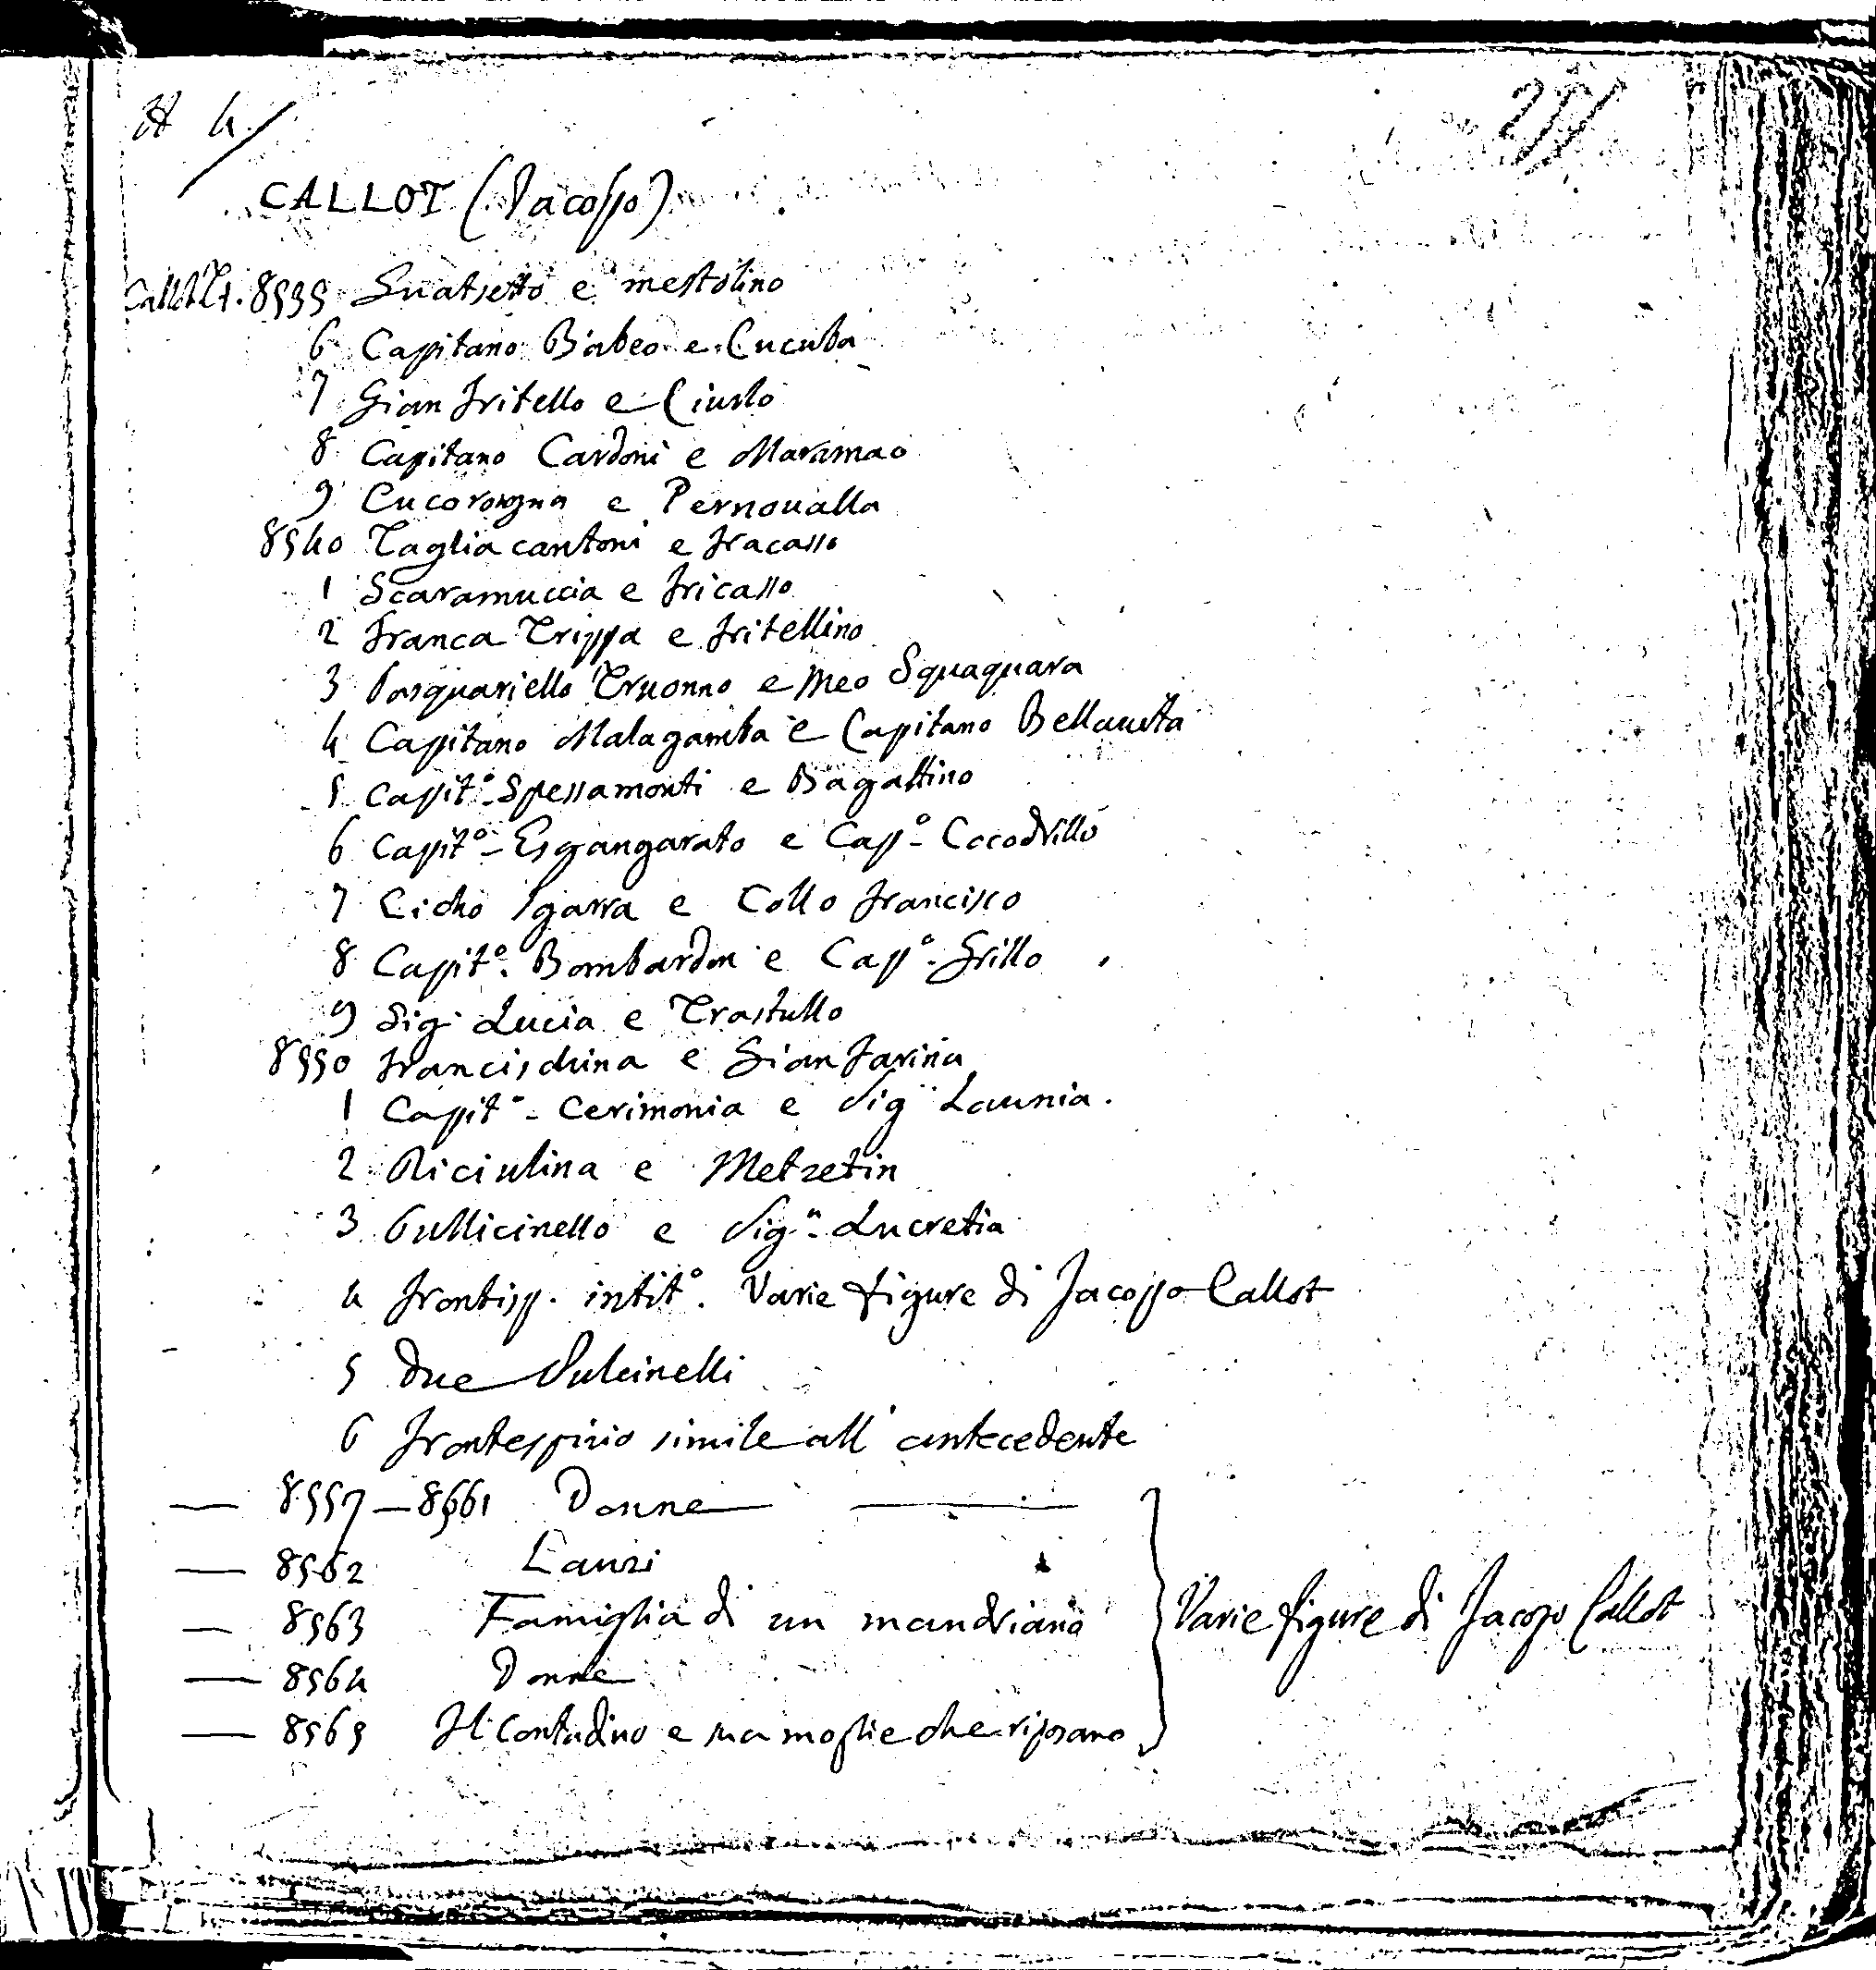 CALLOT (Jacopo)
8535 Guatsetto e mestolino
6 Capitano Babeo e Cucuba
7 Gian Fritello e Ciurlo
8 Capitano Cardoni e Maramao
9 Cucorongna e Pernoualla
8540 Taglia cantoni e Fracasso
1 Scaramuccia e Fricasso
2 Franca Trippa e Fritellino
3 Pasquariello Truonno e Meo Squaquara
4 Capitano Malagamba e Capitano Bellauita
5 Capit.º Spessamonti e Bagattino
6 Capit.º Esgangarato e Cap.º Cocodrillo
7 Cicho Sgarra e Collo Francisco
8 Capit.º Bombardon e Cap.º Grillo
9 Sig.ª Lucia e Trastullo
8550 Francischina e Gian Farina
1 Capit.º Cerimonia e Sig.ª Lauinia.
2 Riciulina e Metzetin
3 Pullicinello e Sig.ª Lucretia
4 Frontisp. intit.º. Varie figure di Jacopo Callot
5 Due Pulcinelli
6 Frontespizio simile all'antecedente
— 8557 — 8561 Donne
— 8562 Lanzi
— 8563 Famiglia di un mandriano
Varie figure di Jacopo Callot
— 8564 Donne
— 8565 Il Contadino e sua moglie che riposano